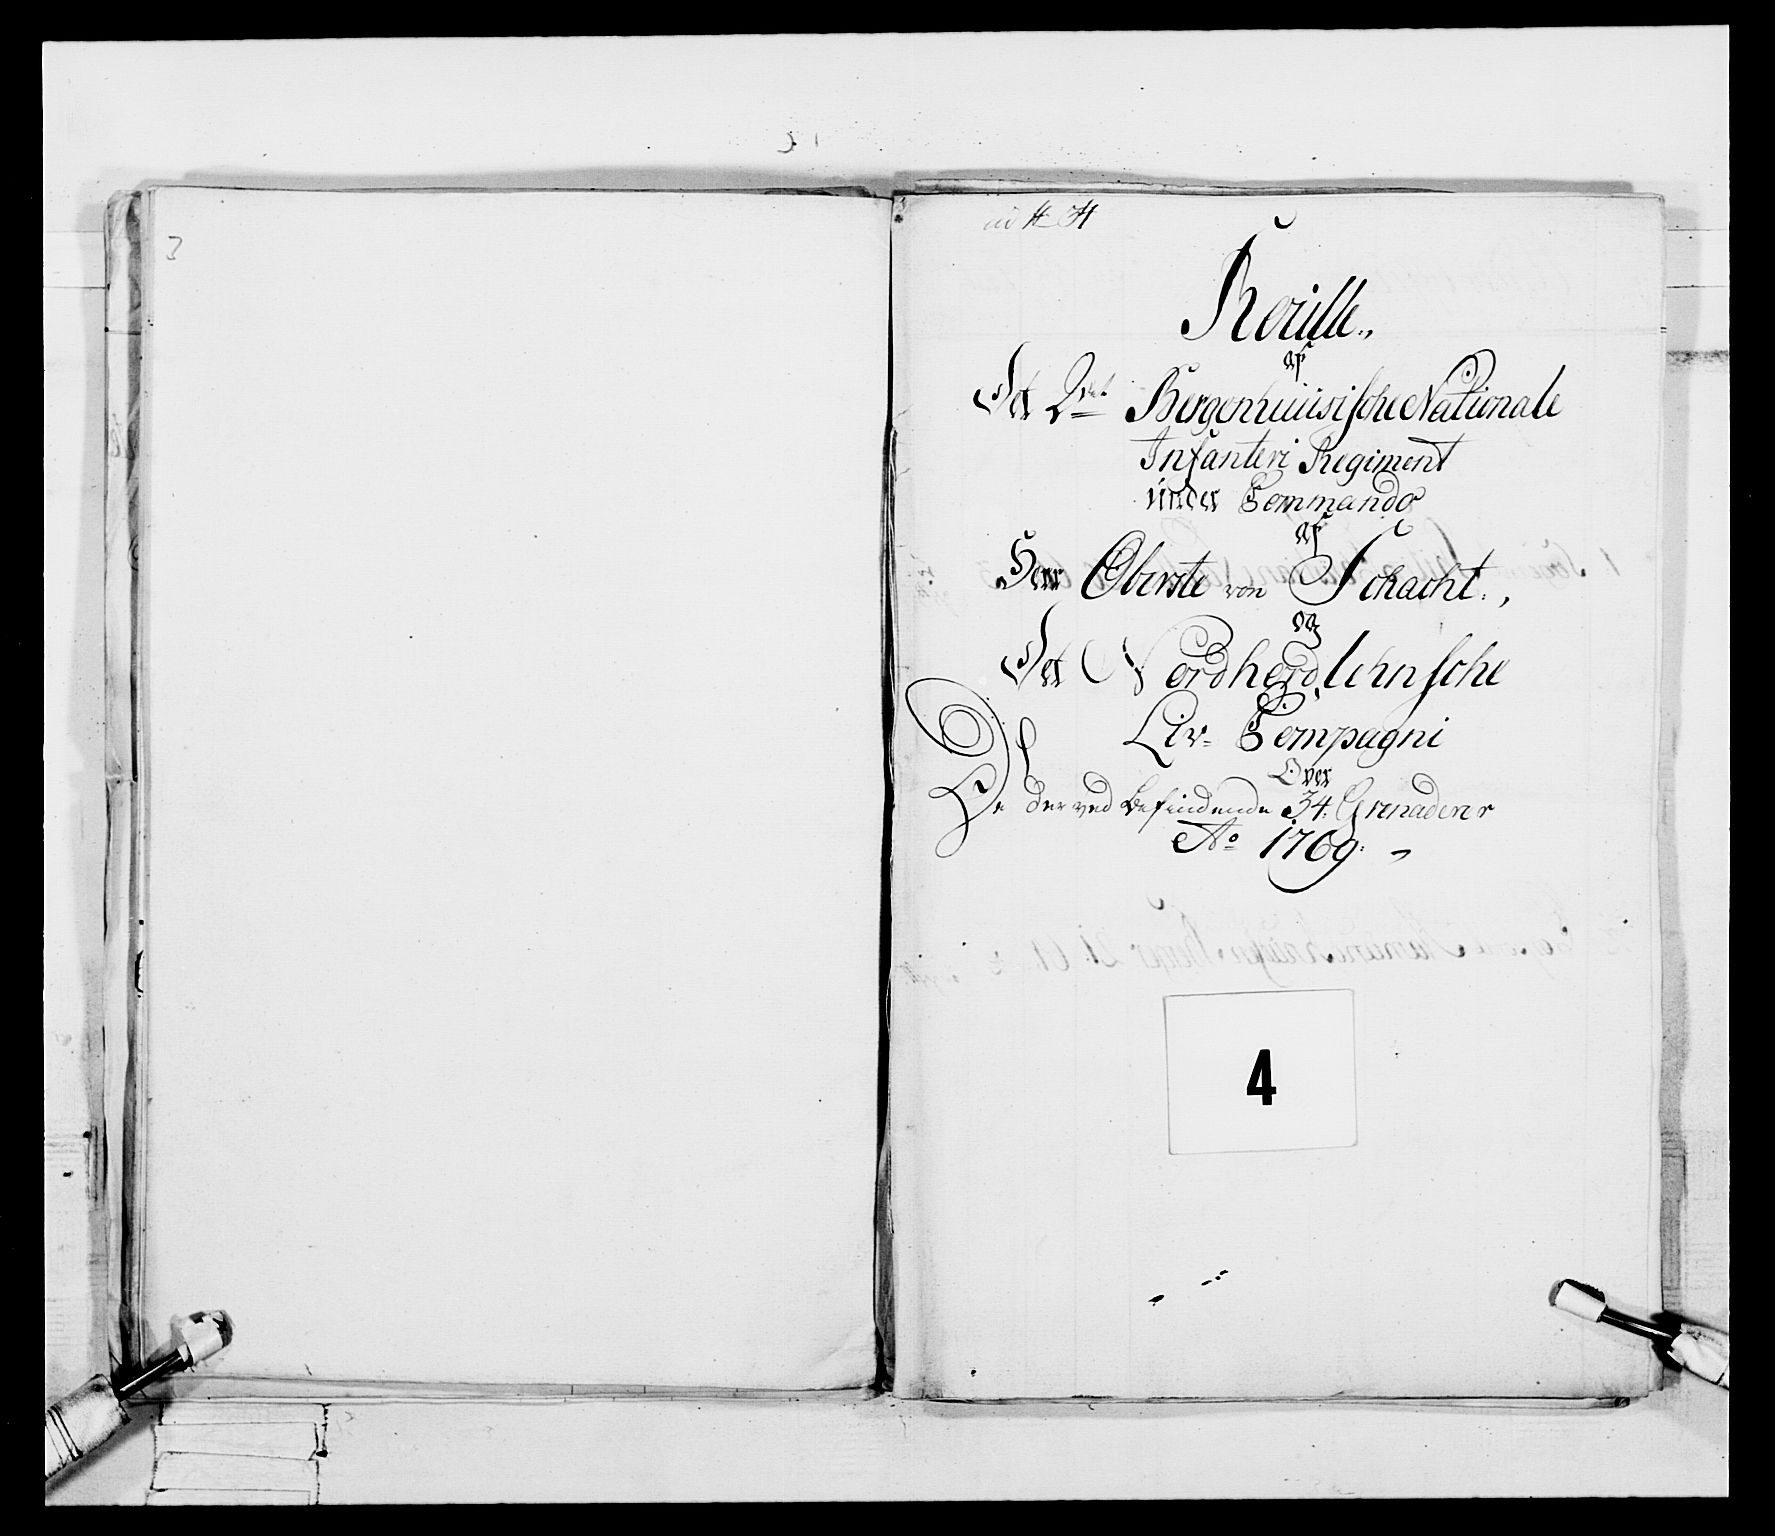 Roulle.,
af
Det 2det Bergenhuusische Nationale
Infanteri Regiment
under Commando
af
Herr Oberste von Schacht.,
og
Det Nordhordlehnsche
Liv- Compagni
Over
De der ved befindende 34. Grenaderer
Ao 1769.
4